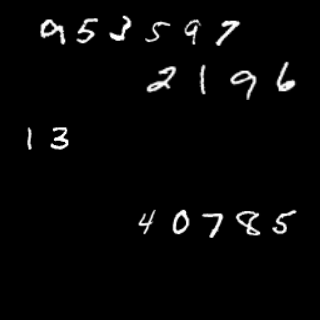 953597
2196
13
40785